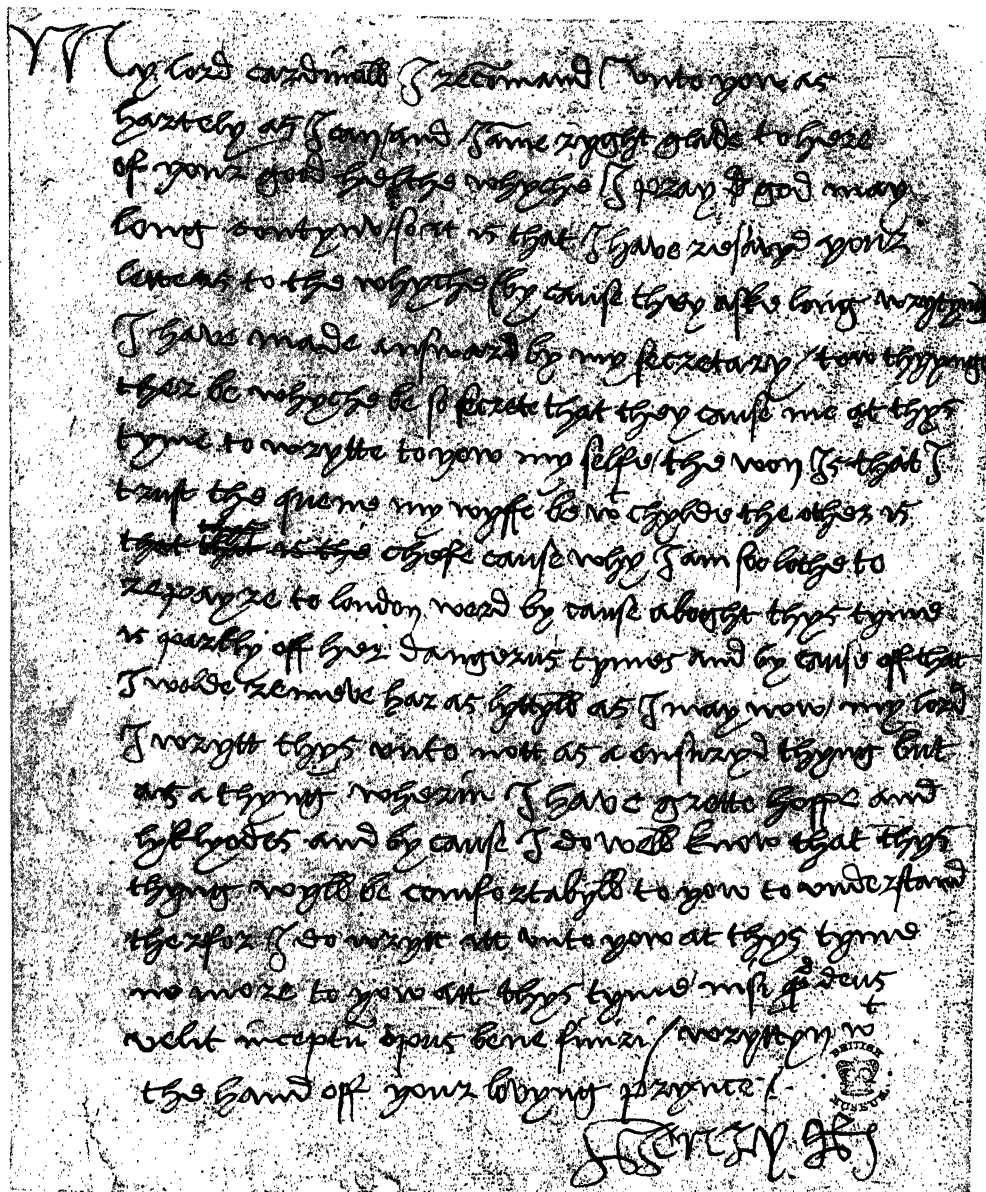 My lord cardinall I recomand unto yow as
hartely as I can and I ame ryght glade to here
of your good helthe whyche I pray god may
long contynu so it is that I have resavyd your
letters to the whyche by cause they aske long wrytyng
I have made answar by my secretary / tow thyngs
ther be whyche be so secrete that they cause me at thys
tyme to wrytte to yow my selfe / the won is that I
trust the quene my wyffe be wt chylde the other is
chefe cause why I am so lothe to
repayre to london ward by cause aboght thys tyme
is partly off her dangerus tymes and by cause off that
I wolde remeve har as lyttyll as I may now / my lord
I wrytt thys unto nott as a ensuryd thyng but
as a thyng wherin I have grette hoppe and
lyklyodes and by cause I do well know that thys
thyng wyll be comfortabyll to yow to understand
therfor I do wrytt itt unto yow at thys tyme
no more to yow att thys tyme nisi qd deus
velit inceptu opus bene finiri / wryttyn wt
the hand off your lovyng prynce
Henry R
BRITISH MUSEUM